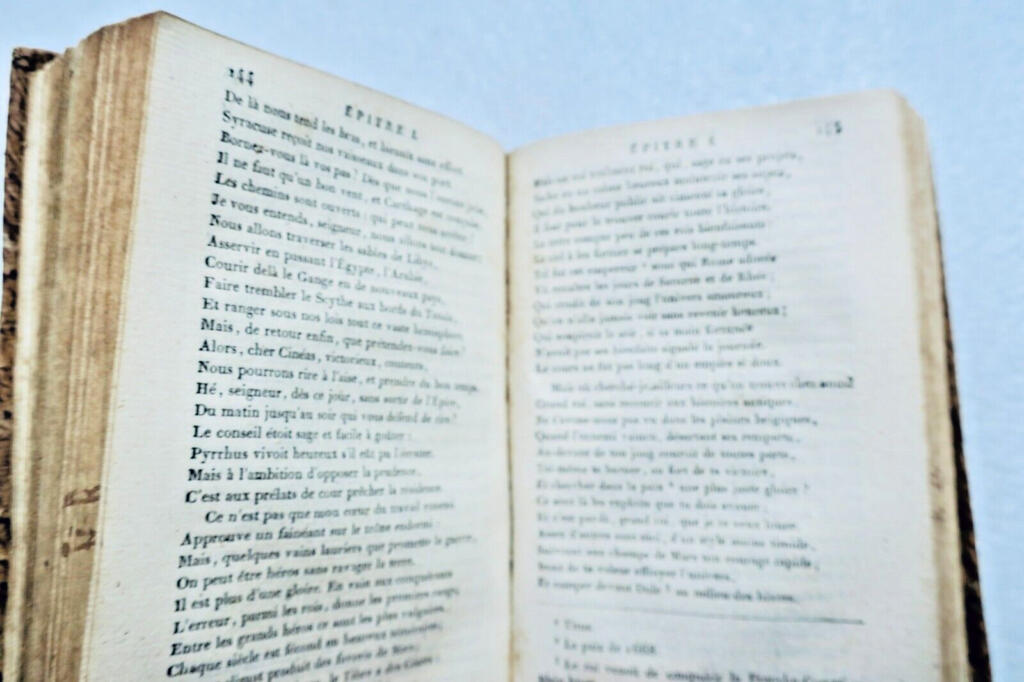 144
ÉPITRE I.
De là nous tend les bras, et bientôt sans effort
Syracuse reçoit nos vaisseaux dans son port.
Bornez-vous là vos pas? Dès que nous l'aurons prise,
Il ne faut qu'un bon vent, et Carthage est conquise.
Les chemins sont ouverts: qui peut nous arrêter?
Je vous entends, seigneur, nous allons tout dompter:
Nous allons traverser les sables de Libye,
Asservir en passant l'Égypte, l'Arabie,
Courir delà le Gange en de nouveaux pays,
Faire trembler le Scythe aux bords du Tanaïs,
Et ranger sous nos lois tout ce vaste hémisphère.
Mais, de retour enfin, que prétendez-vous faire?
Alors, cher Cinéas, victorieux, contents,
Nous pourrons rire à l'aise, et prendre du bon temps.
Hé, seigneur, dès ce jour, sans sortir de l'Épire,
Du matin jusqu'au soir qui vous défend de rire?
Le conseil étoit sage et facile à goûter:
Pyrrhus vivoit heureux s'il eût pu l'écouter.
Mais à l'ambition d'opposer la prudence,
C'est aux prélats de cour prêcher la résidence.
Ce n'est pas que mon cœur du travail ennemi
Approuve un fainéant sur le trône endormi:
Mais, quelques vains lauriers que promette la guerre,
On peut être héros sans ravager la terre.
Il est plus d'une gloire. En vain aux conquérants
L'erreur, parmi les rois, donne les premiers rangs;
Entre les grands héros ce sont les plus vulgaires.
Chaque siècle est fécond en heureux téméraires;
produit des
le Tibre a des
ÉPITRE I.
145
Qui du bonheur public ait cimenté sa gloire,
Il faut pour le trouver courir toute l'histoire.
La terre compte peu de ces rois bienfaisants:
Le ciel à les former se prépare long-temps.
Tel fut cet empereur sous qui Rome adorée
Vit renaître les jours de Saturne et de Rhée;
Qui rendit de son joug l'univers amoureux;
Qu'on n'alla jamais voir sans revenir heureux;
Qui soupiroit le soir, si sa main fortunée
N'avoit par ses bienfaits signalé la journée.
Le cours ne fut pas long d'un empire si doux.
Mais où cherché-je ailleurs ce qu'on trouve chez nous?
Grand roi, sans recourir aux histoires antiques,
Ne t'avons-nous pas vu dans les plaines belgiques,
Quand l'ennemi vaincu, désertant ses remparts,
Au-devant de ton joug couroit de toutes parts,
Toi-même te borner, au fort de ta victoire,
Et chercher dans la paix une plus juste gloire?
Ce sont là les exploits que tu dois avouer:
Et c'est par là, grand roi, que je te veux louer.
Assez d'autres sans moi, d'un style moins timide,
Suivront aux champs de Mars ton courage rapide;
Iront de ta valeur effrayer l'univers,
Et camper devant Dôle au milieu des hivers.
Titus.
La paix de 1668.